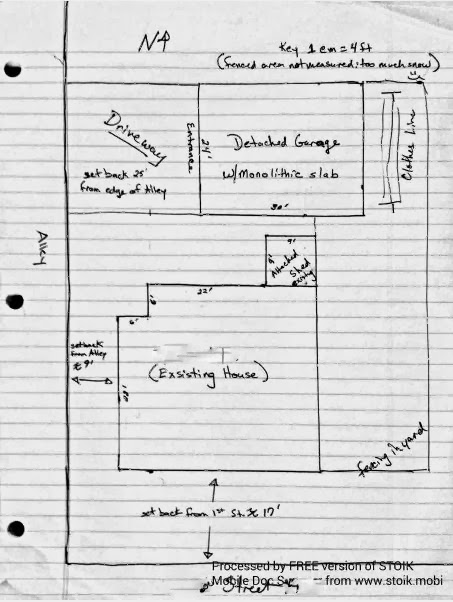 N
Key 1 cm = 4 ft
(fenced area not measured: too much snow)
Driveway
Entrance
24'
Detached Garage
w/Monolithic slab
Clothes Line
set back 25'
from edge of Alley
30'
Alley
9'
9'
Attached
Shed
existing
22'
6'
6'
setback
from Alley
≈ 9'
(Exsisting House)
fencing in yard
set back from 1st St. ≈ 17'
Processed by FREE version of STOIK
Mobile Doc Sc from www.stoik.mobi
Street